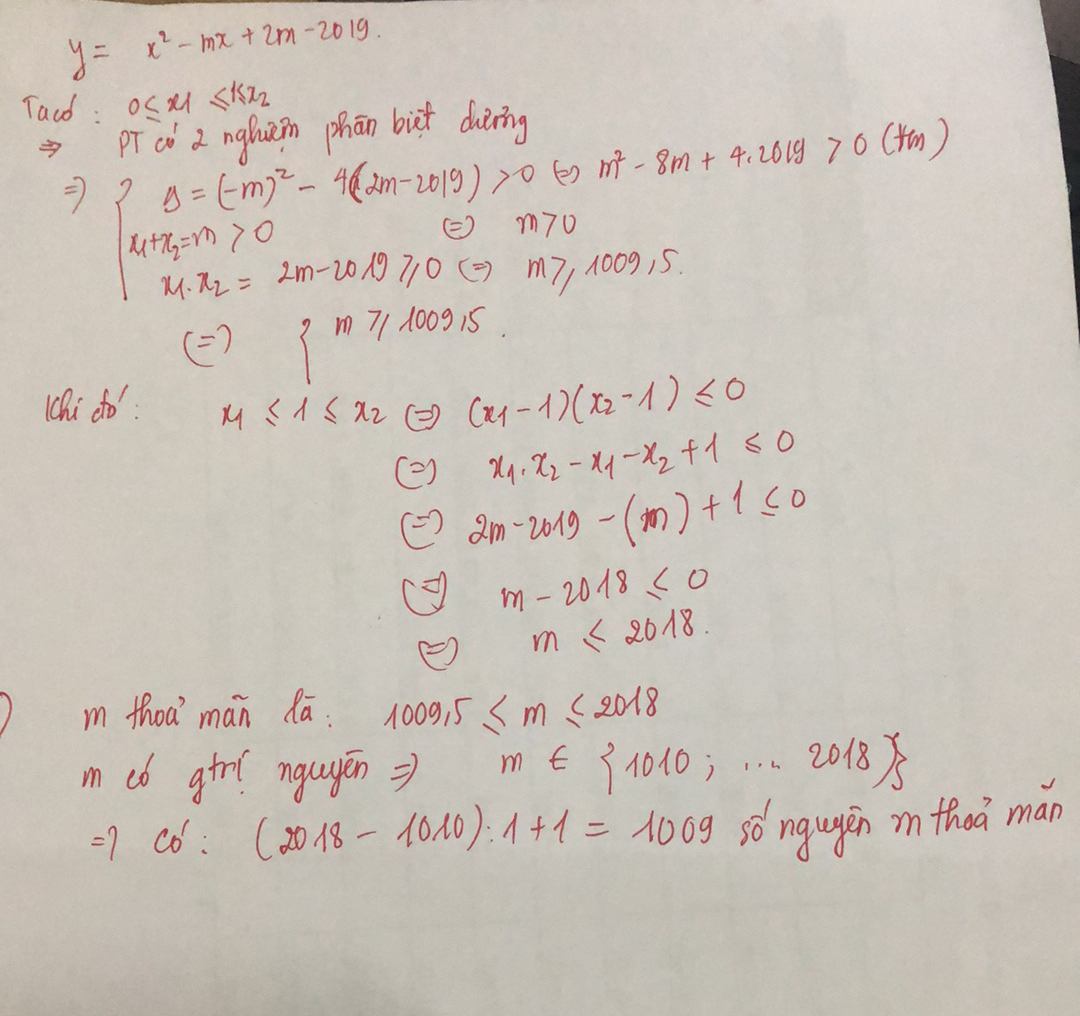 y = x² - mx + 2m - 2019.
Ta có : 0 ≤ x1 ≤ 1 ≤ x2
⇒ PT có 2 nghiệm phân biệt dương
⇒ { Δ = (-m)² - 4(2m-2019) > 0 ⇔ m² - 8m + 4.2019 > 0 (tm)
x1+x2=m > 0 ⇔ m > 0
x1.x2 = 2m-2019 ≥ 0 ⇔ m ≥ 1009,5.
⇔ { m ≥ 1009,5.
Khi đó: x1 ≤ 1 ≤ x2 ⇔ (x1-1)(x2-1) ≤ 0
⇔ x1.x2 - x1 - x2 + 1 ≤ 0
⇔ 2m-2019 - (m) + 1 ≤ 0
⇔ m - 2018 ≤ 0
⇔ m ≤ 2018.
m thoả mãn là: 1009,5 ≤ m ≤ 2018
m có gtrị nguyên ⇒ m ∈ {1010; ... 2018}
⇒ có: (2018 - 1010):1+1 = 1009 số nguyên m thoả mãn